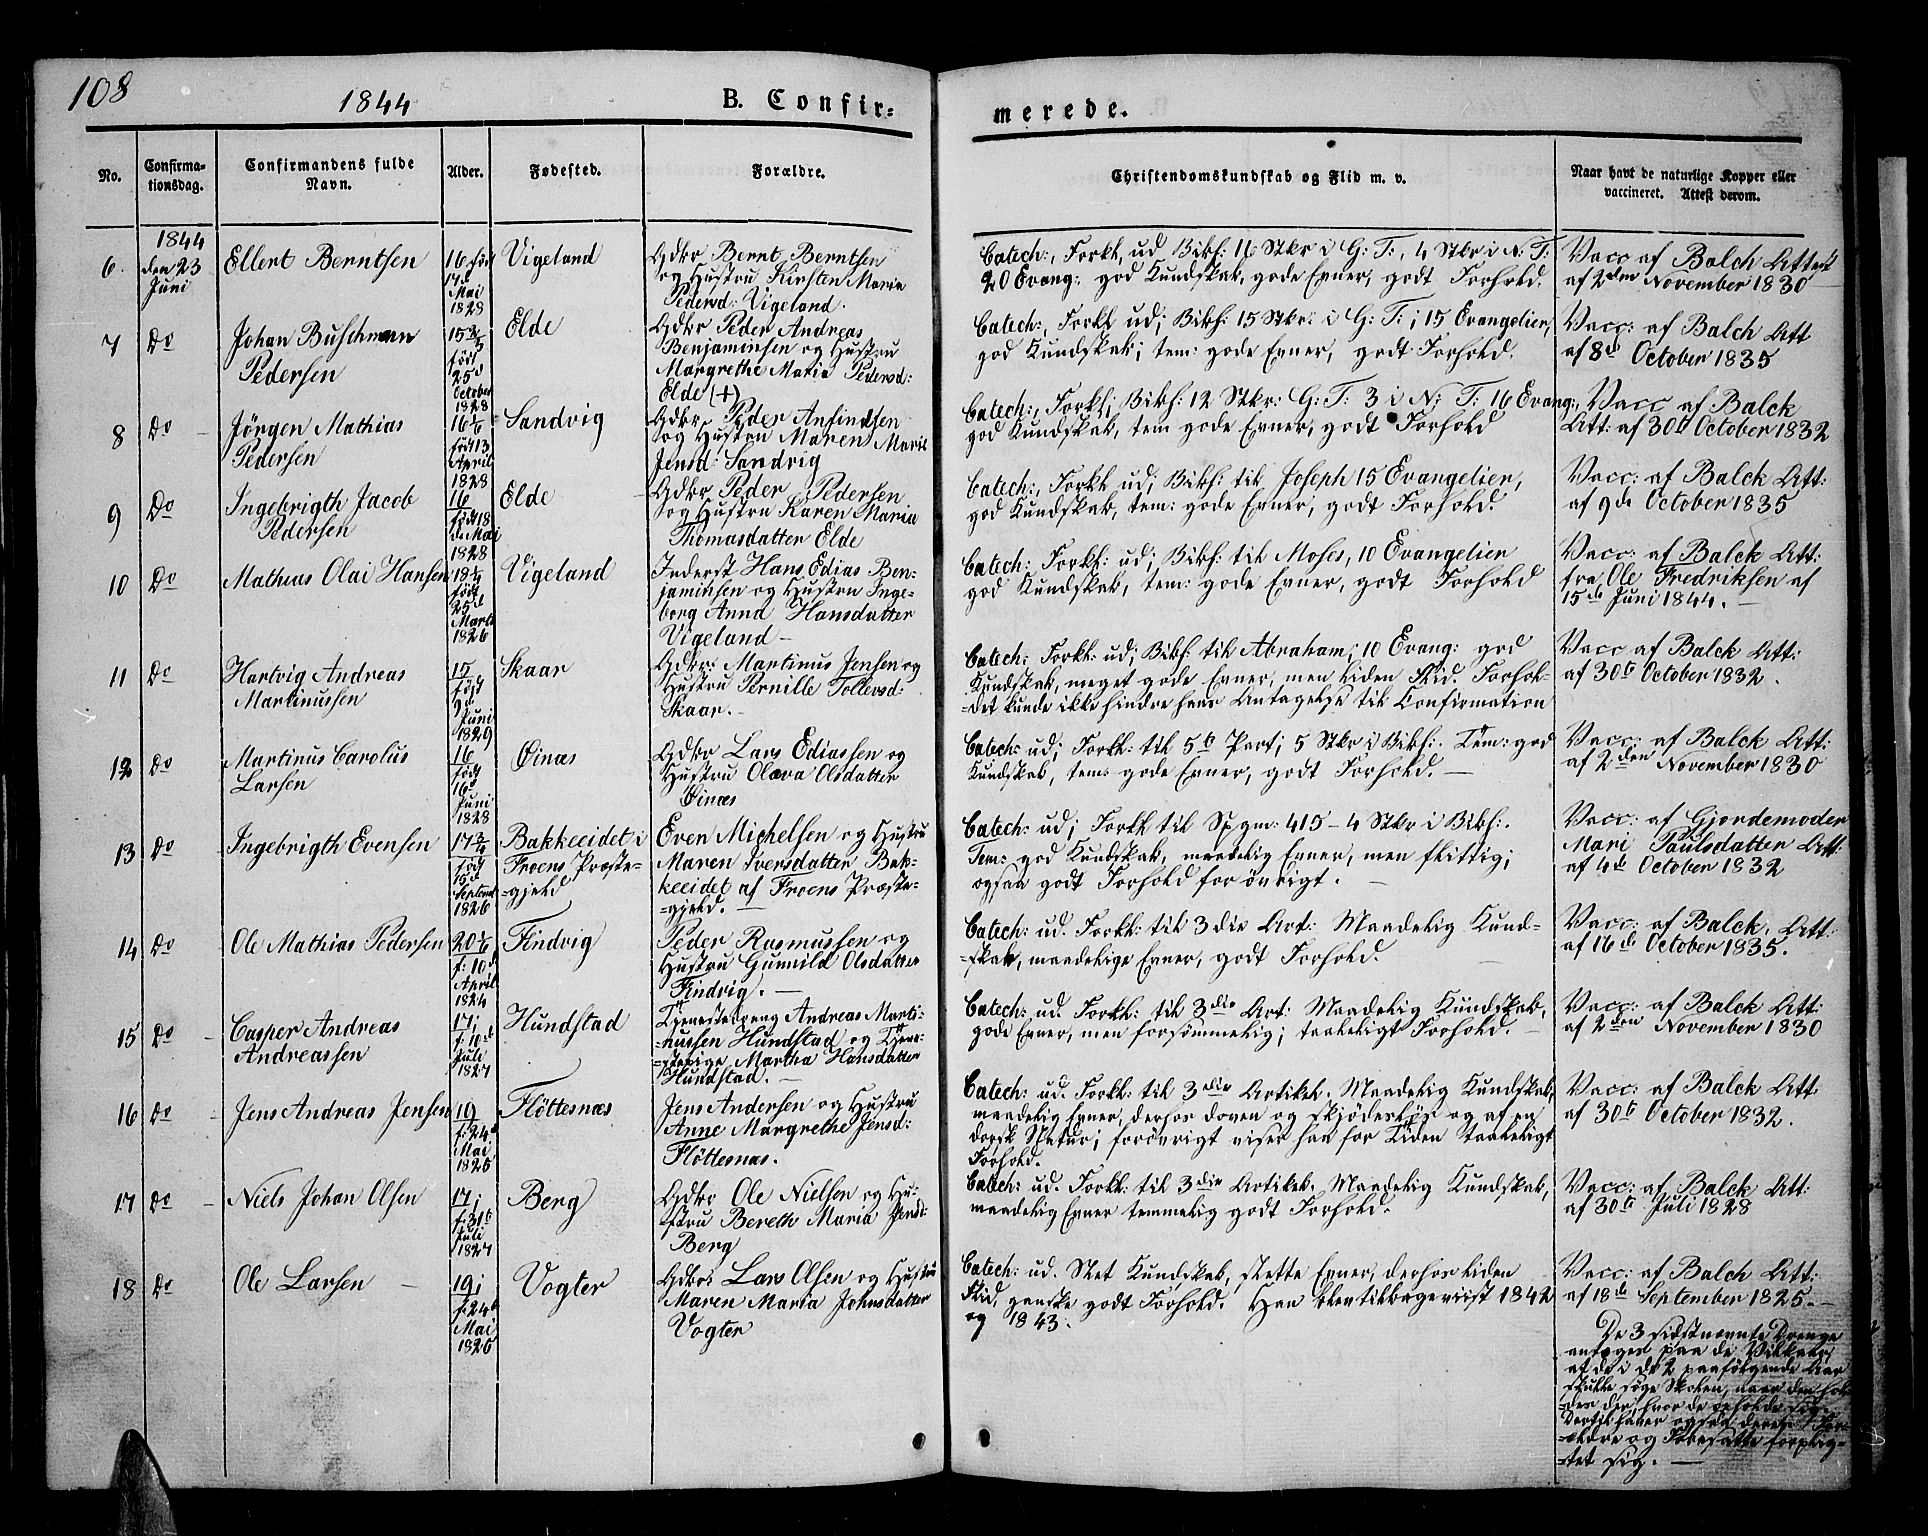 108
1844
B. Confir-
merede.
No.
Confirma-
tionsdag.
Confirmandens fulde
Navn.
Alder.
Fødested.
Forældre.
Christendomskundskab og Flid m. v.
Naar havt de naturlige Kopper eller
vaccineret. Attest derom.
6.
1844
den 23
Juni
Ellert Berntsen
16 født
17d
Mai
1828
Vigeland
Gdbr Bernt Berntsen
og Hustru Kirsten Maria
Pedersd: Vigeland.
Catech:, Forkl. ud, Bibh: 16 Stkr i G: T:, 4 Stkr i N: T:
20 Evang: god Kundskab, gode Evner, godt Forhold.
Vacc af Balch Attest
af 2den November 1830
7
Do
Johan Buschman
Pedersen
15 3/5
født
25d
October
1828
Elde
Gdbr Peder Andreas
Benjaminsen og Hustru
Margrethe Maria Pedersd:
Elde (+)
Catech:, Forkl ud; Bibh: 15 Stkr: i G: T:; 15 Evangelier,
god Kundskab; tem: gode Evner, godt Forhold.
Vacc: af Balch Att
af 8d October 1835
8
Do
Jörgen Mathias
Pedersen
16 1/6
født 13
April
1828
Sandvig
Gdbr Peder Anfindsen
og Hustru Maren Marie
Jensd: Sandvig
Catech:, Forkl; Bibh: 12 Stkr: G: T: 3 i N: T: 16 Evang:,
god Kundskab, tem gode Evner, godt Forhold
Vacc af Balck
Att: af 30t October 1832
9
Do
Ingebrigth Jacob
Pedersen
16
født 18
d. Mai
1828
Elde
Gdbr Peder Pedersen
og Hustru Karen Maria
Thomasdatter Elde
Catech:, Forkl ud; Bibh: til Joseph 15 Evangelier,
god Kundskab, tem: gode Evner, godt Forhold.
Vacc: af Balck Att:
af 9de October 1835
10
Do
Mathias Olai Hansen
18 1/4
født
25d
Marts
1826
Vigeland
Inderst Hans Edias Ben-
jaminsen og Hustru Inge-
borg Anna Hansdatter
Vigeland
Catech: Forkl: ud; Bibh: til Moses, 10 Evangelier
god Kundskab, tem: gode Evner, godt Forhold
Vacc: af Balck Att:
fra Ole Fredriksen af
15de Juni 1844.
11
Do
Hartvig Andreas
Martinussen
15
født
9d
Juni
1829
Skaar
Gdbr: Martinus Jensen og
Hustru Pernille Tollevsd:
Skaar.
Catech: Forkl: ud; Bibh: til Abraham; 10 Evang: god
Kundskab, meget gode Evner, men liden Flid. Forhol-
det kunde ikke hindre hans Antagelse til Confirmation
Vacc af Balck Att:
af 30t October 1832.
12
Do
Martinus Carolus
Larsen
16
født
16d
Juni
1828
Øinæs
Gdbr Lars Ediassen og
Hustru Olava Olsdatter
Øinæs
Catech: ud; Forkl: til 5te Part; 5 Stkr i Bibh:. Tem: god
Kundskab, tem: gode Evner, godt Forhold.
Vacc: af Balck Att:
af 2den November 1830
13
Do
Ingebrigth Evensen
17 3/4
født
15d
Septemb
1826
Bakkeeidet i
Froens Præste-
gjeld
Even Michelsen og Hustru
Maren Iversdatter Bak-
keeidet af Froens Præste-
gjeld.
Catech: ud; Forkl til Spgm: 415 - 4 Stkr i Bibh:.
Tem: god Kundskab, maadelig Evner, men flittig;
ogsaa godt Forhold for övrigt.
Vacc: af Gjordemoder
Mari Paulsdatter Att:
af 4de October 1832
14
Do
Ole Mathias Pedersen
20 1/6
f: 10d
April
1824
Findvig
Peder Rasmussen og
Hustru Gunnild Olsdatter
Findvig.
Catech: ud. Forkl: til 3die Art: Maadelig Kund-
skab, maadelige Evner, godt Forhold.
Vacc: af Balck. Att:
af 16de October 1835.
15
Do
Casper Andreas
Andreassen
17;
f: 10d
Juli
1827
Hundstad
Tjenestedreng Andreas Marti-
nussen Hundstad og Tjene-
stepige Martha Hansdatter
Hundstad.
Catech: ud. Forkl: til 3die Art: Maadelig Kundskab,
gode Evner, men forsömmelig; taaleligt Forhold.
Vacc: af Balck Att:
af 2den November 1830
16
Do
Jens Andreas Jensen
19
f: 24d
Mai
1825
Flöttesnæs
Jens Andersen og Hustru
Anne Margrethe Jensd:
Flöttesnæs.
Catech: ud. Forkl: til 3die Artikel. Maadelig Kundskab,
maadelig Evner, derhos doven og skjödeslös og af en
dorsk Natur; forövrigt viser han for Tiden taaleligt
Forhold.
Vacc: af Balck Att:
af 30t October 1832.
17
Do
Niels Johan Olsen
17;
f: 31t
Juli
1827
Berg
Gdbr Ole Nielsen og Hu-
stru Bereth Maria Jensd:
Berg
Catech: ud. Forkl: til 3die Artikel. Maadelig Kundskab,
maadelig Evner temmelig godt Forhold.
Vacc: af Balck Att:
af 30t Juli 1828
18
Do
Ole Larsen
19;
f: 24d
Mai
1825
Vogter
Gdbr: Lars Olsen og Hustru
Maren Maria Johnsdatter
Vogter
Catech: ud. Slet Kundskab, slette Evner, derhos liden
Flid, ganske godt Forhold. Han blev tilbageviist 1842
og 1843.
Vacc: af Balch Att:
af 18de September 1825.
De 3 sidstnævnte Drenge
antoges paa de Vilkaar
at de i de 2 paafölgende Aar
skulle söge Skolen, naar den hol-
des der, hvor de opholde sig.
Dertil have ogsaa deres For-
ældre og Foresatte forplig-
tet sig.